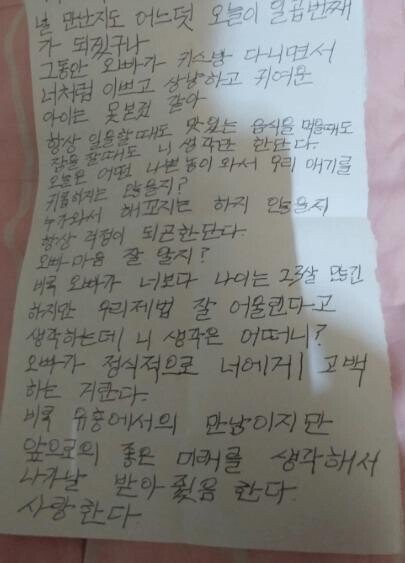 널 만난지도 어느덧 오늘이 일곱번째
가 되겠구나
그동안 오빠가 키스방 다니면서
너처럼 이쁘고 상냥하고 귀여운
아이는 못본것 같아
항상 일을할때도 맛있는 음식을 먹을때도
잠을 잘때도 니 생각만 한단다.
오늘은 어떤 나쁜놈이 와서 우리 애기를
괴롭히지는 않을지?
누가와서 해꼬지는 하지 않을지
항상 걱정이 되곤한단다.
오빠 마음 잘 알지?
비록 오빠가 너보다 나이는 23살 많긴
하지만 우리제법 잘 어울린다고
생각하는데 니 생각은 어떠니?
오빠가 정식적으로 너에게 고백
하는 거란다.
비록 유흥에서의 만남이지만
앞으로의 좋은 미래를 생각해서
나가날 받아 줬음 한다.
사랑한다